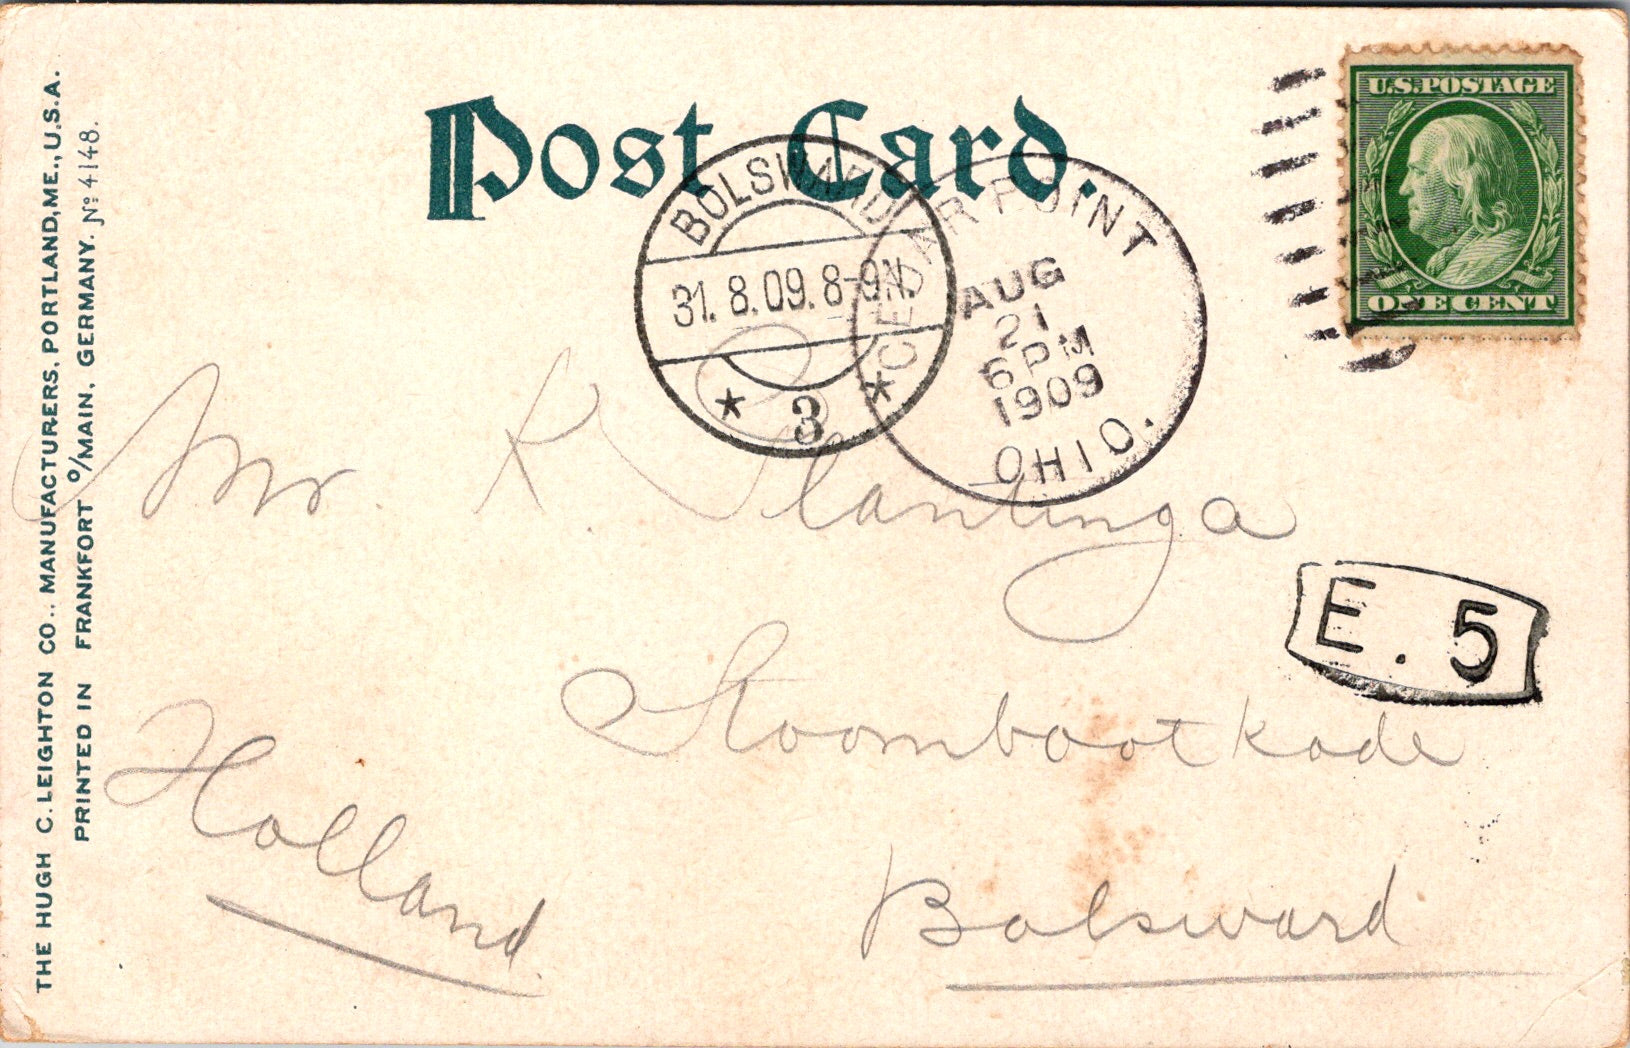 Post Card.
U.S. POSTAGE
ONE CENT
BOLSWARD
31. 8. 09. 8-9N.
* 3 *
CEDAR POINT
AUG
21
6 PM
1909
OHIO.
Mr. K. Slantinga
E. 5
Stoomboot kade
Holland
Bolsward
THE HUGH C. LEIGHTON CO., MANUFACTURERS, PORTLAND, ME., U.S.A.
PRINTED IN FRANKFORT o/MAIN, GERMANY. No 4148.